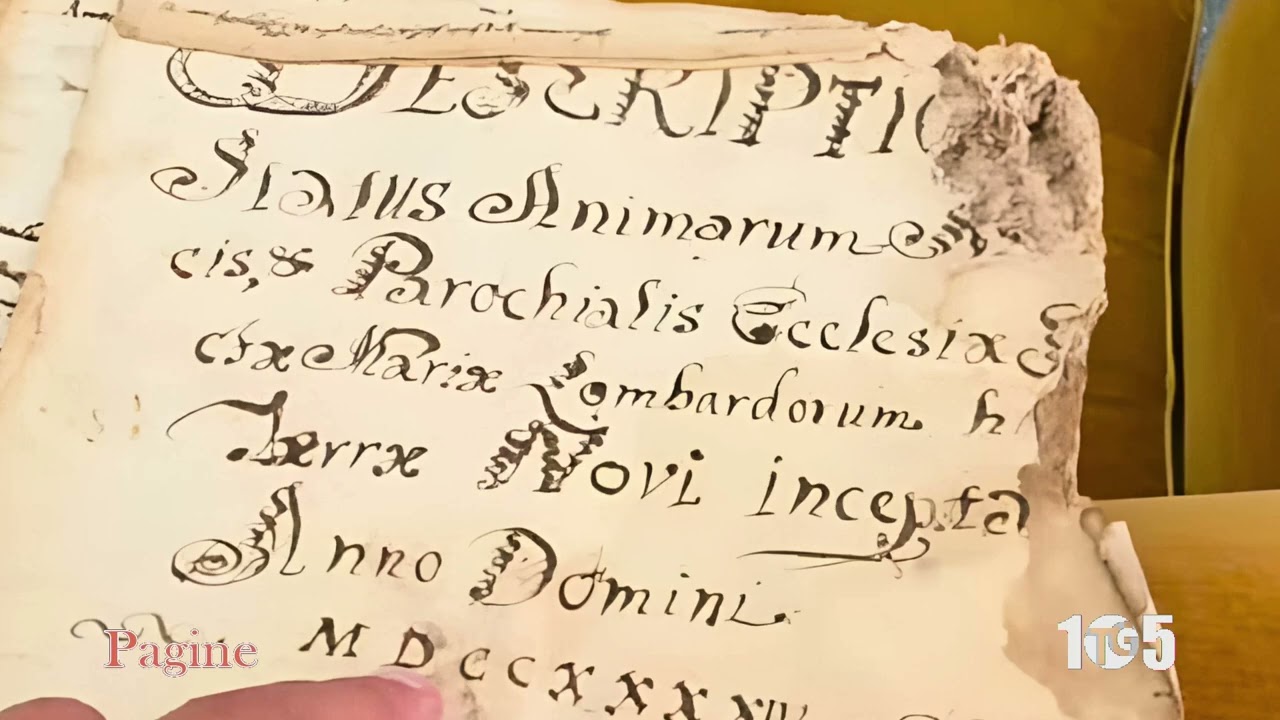 DESCRIPTIO
Status Animarum
cis, & Parochialis Ecclesiæ S
ctæ Mariæ Lombardorum h
Terræ Novi incepta
Anno Domini
MDCCXXXXIV
Pagine
TG
105